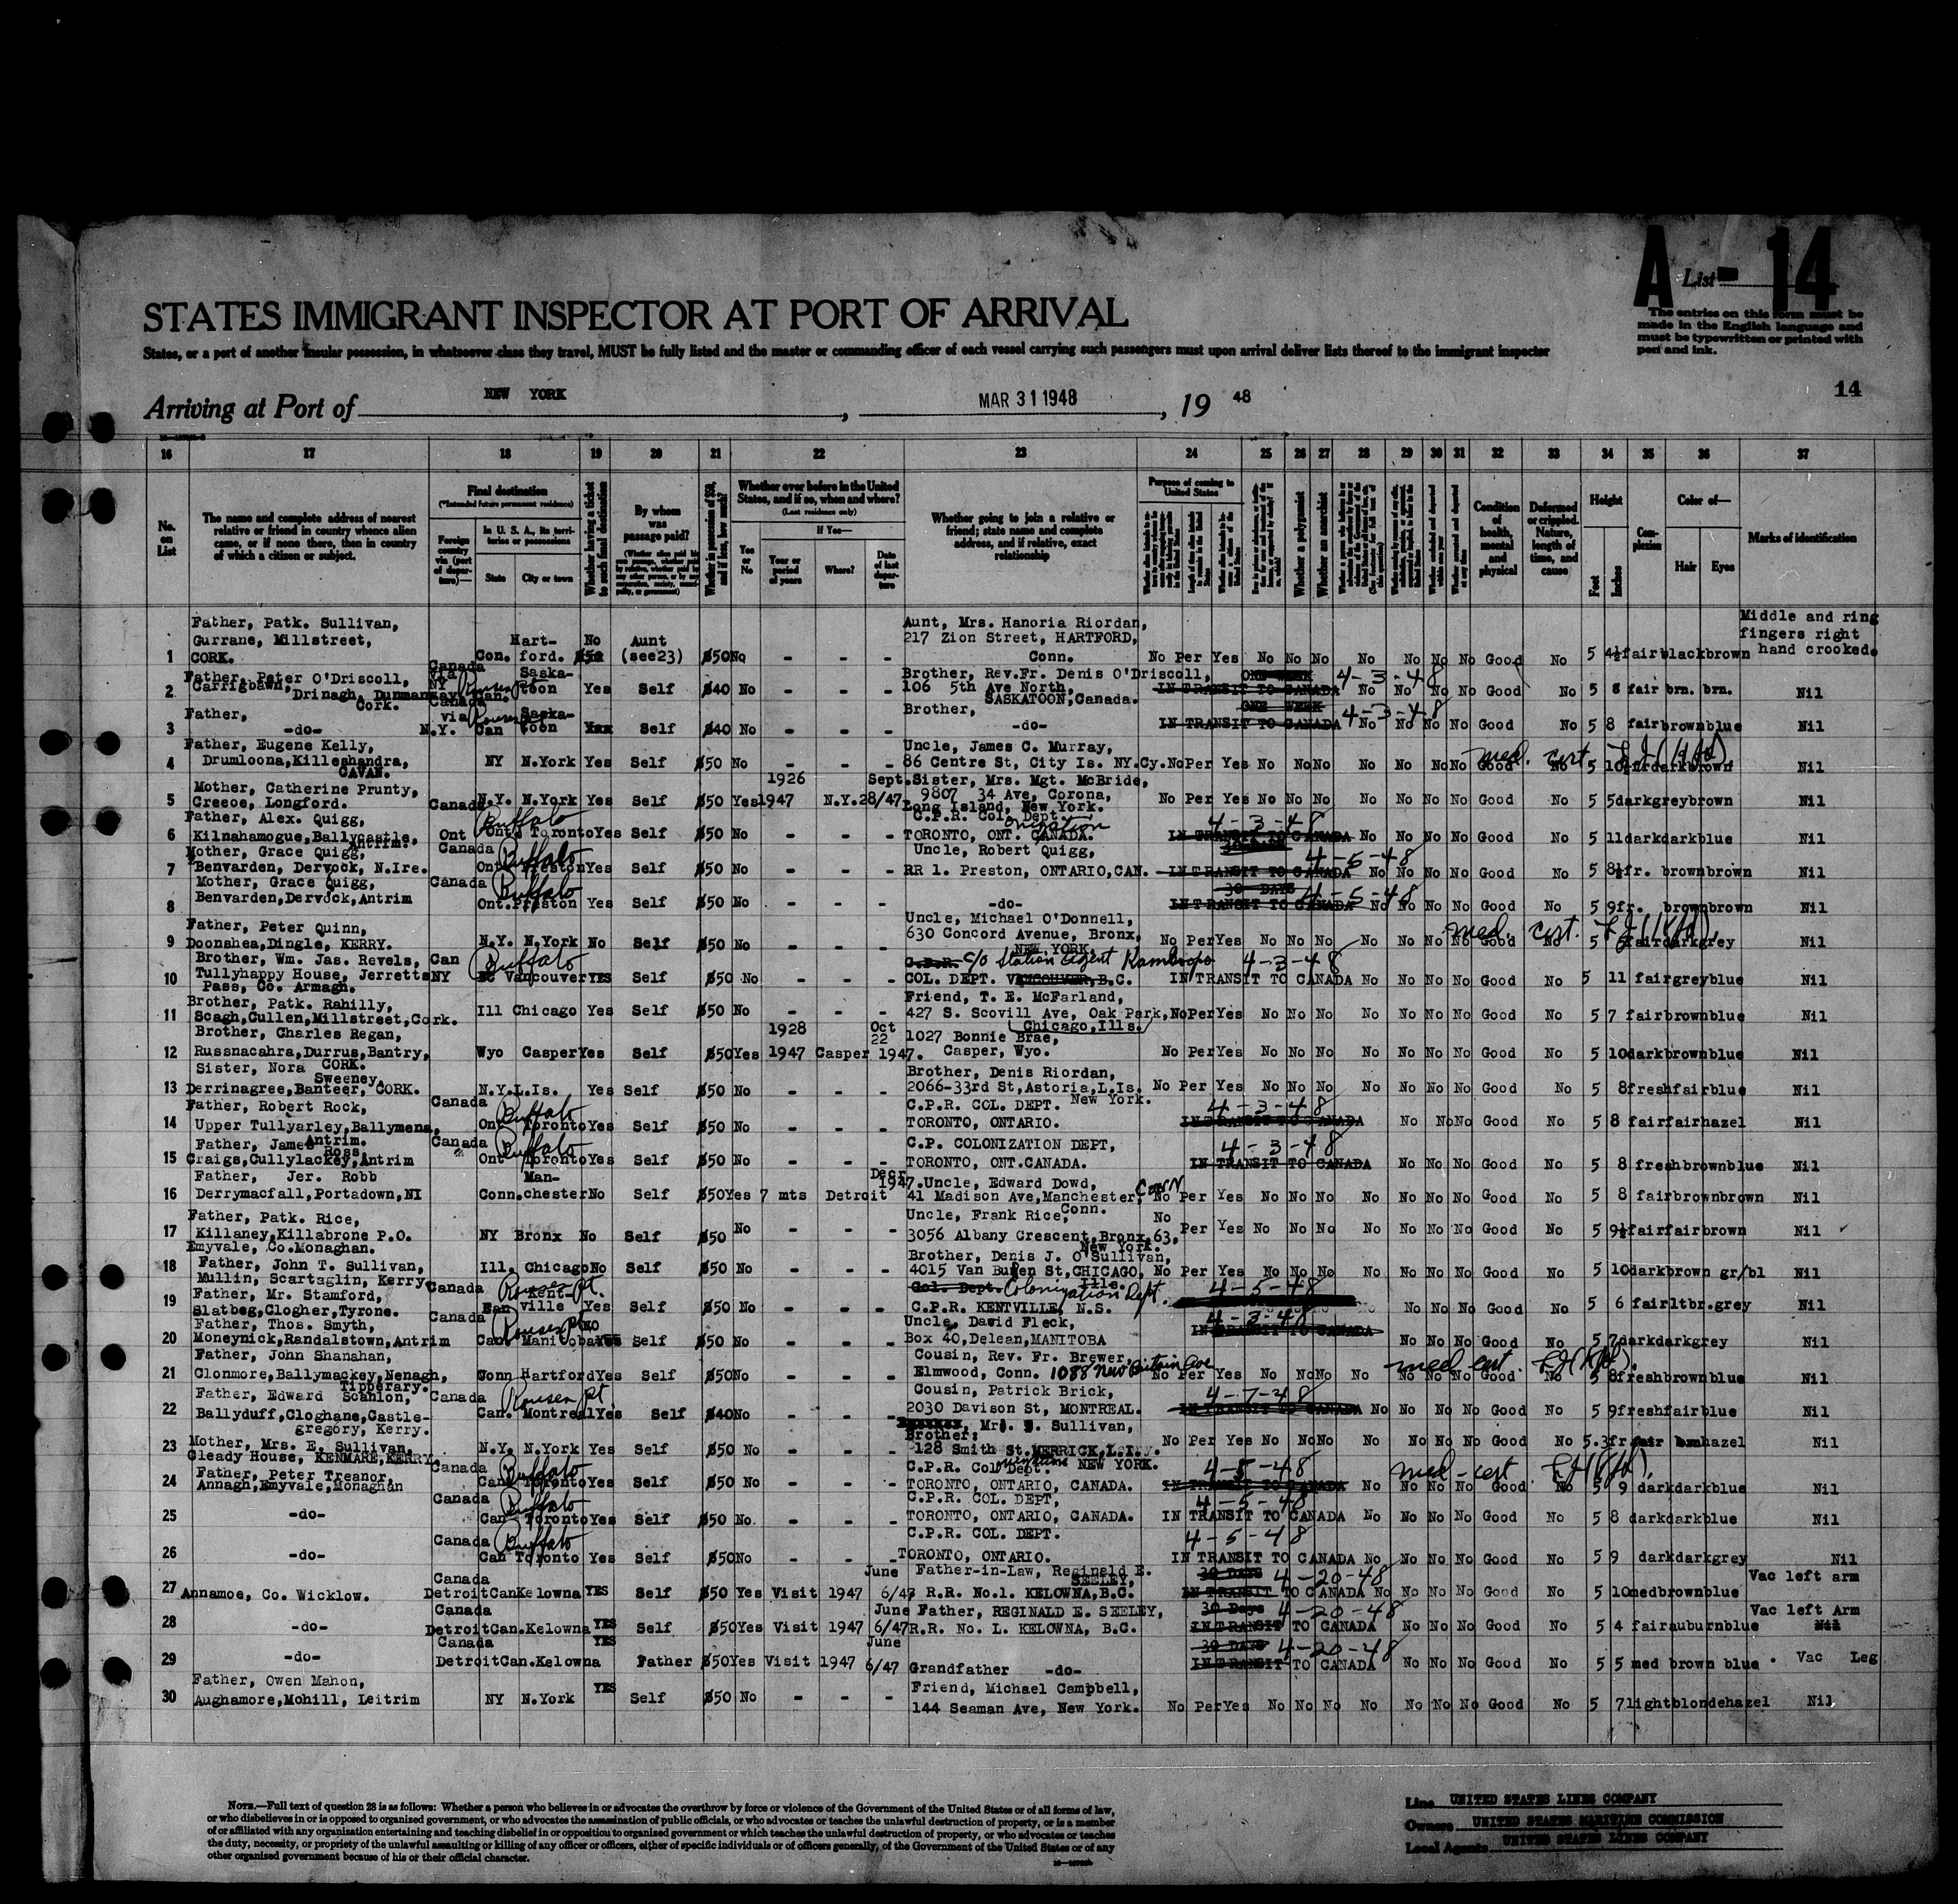 A List 14
The entries on this form must be
made in the English language and
must be typewritten or printed with
pen and ink.
STATES IMMIGRANT INSPECTOR AT PORT OF ARRIVAL
States, or a port of another insular possession, in whatsoever class they travel, MUST be fully listed and the master or commanding officer of each vessel carrying such passengers must upon arrival deliver lists thereof to the immigrant inspector
14
Arriving at Port of NEW YORK, MAR 31 1948, 19 48
16 17 18 19 20 21 22 23 24 25 26 27 28 29 30 31 32 33 34 35 36 37
No. on List
The name and complete address of nearest relative or friend in country whence alien came, or if none there, then in country of which a citizen or subject.
Final destination
(*Intended future permanent residence)
Foreign country via (port of departure)—
In U. S. A., its territories or possessions
State City or town
Whether having a ticket to such final destination
By whom was passage paid?
Whether in possession of $50, and if less, how much?
Whether ever before in the United States, and if so, when and where?
(Last residence only)
Yes or No
If Yes—
Year or period of years
Where?
Date of last departure
Whether going to join a relative or friend; state name and complete address, and if relative, exact relationship
Purpose of coming to United States
Whether a polygamist
Whether an anarchist
Condition of health, mental and physical
Deformed or crippled. Nature, length of time, and cause
Height
Feet Inches
Complexion
Color of—
Hair Eyes
Marks of identification
1 Father, Patk. Sullivan, Gurrane, Millstreet, CORK. Con. Hartford. No Aunt (see23) $50 No - - - Aunt, Mrs. Hanoria Riordan, 217 Zion Street, HARTFORD, Conn. No Per Yes No No No No No No No Good No 5 4½ fair black brown Middle and ring fingers right hand crooked.
2 Father, Peter O'Driscoll, Carrigbawn, Drinagh, Dunmanway, Cork. Canada via NY Rouses Pt Can. Saskatoon Yes Self $40 No - - - Brother, Rev.Fr. Denis O'Driscoll, 106 5th Ave North, SASKATOON,Canada. ONE WEEK 4-3-48 IN TRANSIT TO CANADA No No No No Good No 5 8 fair brn. brn. Nil
3 Father, -do- Canada via N.Y. Rouses Pt Can Saskatoon Self $40 No - - - Brother, -do- ONE WEEK 4-3-48 IN TRANSIT TO CANADA No No No No Good No 5 8 fair brown blue Nil
4 Father, Eugene Kelly, Drumloona,Killeshandra, CAVAN. NY N.York Yes Self $50 No - - - Uncle, James C. Murray, 86 Centre St, City Is. NY.Cy. No Per Yes No No No No No No No Good No med. cert. 5 10 dark brown Nil
5 Mother, Catherine Prunty, Creeoe, Longford. N.Y. N.York Yes Self $50 Yes 1926 1947 N.Y. Sept. 28/47 Sister, Mrs. Mgt. McBride, 9807 34 Ave, Corona, Long Island, New York. No Per Yes No No No No No No No Good No 5 5 dark grey brown Nil
6 Father, Alex. Quigg, Kilnahamogue,Ballycastle, Antrim. Canada Ont Buffalo Ont. Toronto Yes Self $50 No - - - C.P.R. Col. Dept. onization TORONTO, ONT. CANADA. 4-3-48 IN TRANSIT TO CANADA No No No No Good No 5 11 dark dark blue Nil
7 Mother, Grace Quigg, Benvarden, Dervock, N.Ire. Canada Buffalo Ont. Preston Yes Self $50 No - - - Uncle, Robert Quigg, RR 1. Preston, ONTARIO,CAN. 4-5-48 IN TRANSIT TO CANADA No No No No Good No 5 8½ fr. brown brown Nil
8 Mother, Grace Quigg, Benvarden,Dervock,Antrim Canada Buffalo Ont. Preston Yes Self $50 No - - - -do- 30 DAYS 4-5-48 IN TRANSIT TO CANADA No No No No Good No 5 9 fr. brown brown Nil
9 Father, Peter Quinn, Doonshea,Dingle, KERRY. N.Y. N.York No Self $50 No - - - Uncle, Michael O'Donnell, 630 Concord Avenue, Bronx, NEW YORK. No Per Yes No No No No No No No Good No med. cert. 5 fair dark grey Nil
10 Brother, Wm. Jas. Revels, Tullyhappy House, Jerretts Pass, Co. Armagh. Can NY Buffalo BC Vancouver YES Self $50 No - - - C.P.R. c/o Station Agent Kamloops COL. DEPT. VANCOUVER,B.C. 4-3-48 IN TRANSIT TO CANADA No No No No Good No 5 11 fair grey blue Nil
11 Brother, Patk. Rahilly, Scagh,Cullen,Millstreet,Cork. Ill Chicago Yes Self $50 No - - - Friend, T. E. McFarland, 427 S. Scovill Ave, Oak Park, Chicago,Ills. No Per Yes No No No No No No No Good No 5 7 fair brown blue Nil
12 Brother, Charles Regan, Russnacahra,Durrus,Bantry, CORK. Wyo Casper Yes Self $50 Yes 1928 1947 Casper Oct 22 1947. 1027 Bonnie Brae, Casper, Wyo. No Per Yes No No No No No No No Good No 5 10 dark brown blue Nil
13 Sister, Nora Sweeney, Derrinagree,Banteer, CORK. N.Y. L.Is. Yes Self $50 No - - - Brother, Denis Riordan, 2066-33rd St,Astoria,L.Is. New York. No Per Yes No No No No No No No Good No 5 8 fresh fair blue Nil
14 Father, Robert Rock, Upper Tullyarley,Ballymena, Antrim. Canada Buffalo Ont Toronto Yes Self $50 No - - - C.P.R. COL. DEPT. TORONTO, ONTARIO. 4-3-48 IN TRANSIT TO CANADA No No No Good No 5 8 fair fair hazel Nil
15 Father, James Ross, Craigs,Cullylackey,Antrim Canada Buffalo Ont Toronto Yes Self $50 No - - - C.P. COLONIZATION DEPT, TORONTO, ONT.CANADA. 4-3-48 IN TRANSIT TO CANADA No No No Good No 5 8 fresh brown blue Nil
16 Father, Jer. Robb Derrymacfall,Portadown,NI Conn. Manchester No Self $50 Yes 7 mts Detroit Decr 1947. Uncle, Edward Dowd, 41 Madison Ave,Manchester, Conn. CONN No Per Yes No No No No No No No Good No 5 8 fair brown brown Nil
17 Father, Patk. Rice, Killaney,Killabrone P.O. Emyvale, Co.Monaghan. NY Bronx No Self $50 No - - - Uncle, Frank Rice, 3056 Albany Crescent,Bronx,63, New York. No Per Yes No No No No No No No Good No 5 9½ fair fair brown Nil
18 Father, John T. Sullivan, Mullin, Scartaglin, Kerry. Ill, Chicago No Self $50 No - - - Brother, Denis J. O'Sullivan, 4015 Van Buren St,CHICAGO, Ills. No Per Yes No No No No No No No Good No 5 10 dark brown gr/bl Nil
19 Father, Mr. Stamford, Slatbeg,Clogher,Tyrone. Canada Rouses Pt. Can Kentville Yes Self $50 No - - - Col. Dept. Colonization Dept. C.P.R. KENTVILLE, N.S. 4-5-48 No No No Good No 5 6 fair ltbr. grey Nil
20 Father, Thos. Smyth, Moneynick,Randalstown,Antrim Canada Rouses Pt. Can. Manitoba NO Self $50 No - - - Uncle, David Fleck, Box 40,Delean,MANITOBA 4-3-48 IN TRANSIT TO CANADA No No No Good No 5 7 dark dark grey Nil
21 Father, John Shanahan, Clonmore,Ballymackey,Nenagh, Tipperary. Conn Hartford Yes Self $50 No - - - Cousin, Rev. Fr. Brewer, Elmwood, Conn. 1088 New Britain Ave No Per Yes No No No No No No No Good No med cert. 5 8 fresh brown blue Nil
22 Father, Edward Scanlon, Ballyduff,Cloghane,Castlegregory, Kerry. Canada Rouses Pt Can. Montreal Yes Self $40 No - - - Cousin, Patrick Brick, 2030 Davison St, MONTREAL. 4-7-48 IN TRANSIT TO CANADA No No No No Good No 5 9 fresh fair blue Nil
23 Mother, Mrs. E. Sullivan, Cleady House, KENMARE,KERRY. N.Y. N.York Yes Self $50 No - - - Brother: Mr. Sullivan, 128 Smith St.MERRICK,L.I. NEW YORK. No Per Yes No No No No No No No Good No 5.3 fr hazel Nil
24 Father, Peter Treanor, Annagh,Emyvale,Monaghan Canada Buffalo Can Toronto Yes Self $50 No - - - C.P.R. Col Dept. TORONTO, ONTARIO, CANADA. 4-5-48 IN TRANSIT TO CANADA No No No No Good No med-cert 5 9 dark dark blue Nil
25 -do- Canada Buffalo Can Toronto Yes Self $50 No. - - - C.P.R. COL. DEPT, TORONTO, ONTARIO, CANADA. 4-5-48 IN TRANSIT TO CANADA No No No No Good No 5 8 dark dark blue Nil
26 -do- Canada Buffalo Can Toronto Yes Self $50 No - - - C.P.R. COL. DEPT. TORONTO, ONTARIO. 4-5-48 IN TRANSIT TO CANADA No No No No Good No 5 9 dark dark grey Nil
27 Annamoe, Co. Wicklow. Canada Detroit Can Kelowna YES Self $50 Yes Visit 1947 June 6/47 Father-in-Law, Reginald E. SEELEY, R.R. No.1. KELOWNA,B.C. 30 DAYS 4-20-48 IN TRANSIT TO CANADA No No No No Good No 5 10 med brown blue Vac left arm
28 -do- Canada Detroit Can. Kelowna YES Self $50 Yes Visit 1947 June 6/47 Father, REGINALD E. SEELEY, R.R. No. L. KELOWNA, B.C. 30 Days 4-20-48 IN TRANSIT TO CANADA No No No Good No 5 4 fair auburn blue Vac left Arm Nil
29 -do- Canada Detroit Can. Kelowna YES Father $50 Yes Visit 1947 June 6/47 Grandfather -do- 30 DAYS 4-20-48 IN TRANSIT TO CANADA No No No Good No 5 5 med brown blue Vac Leg
30 Father, Owen Mahon, Aughamore,Mohill, Leitrim NY N.York YES Self $50 No - - - Friend, Michael Campbell, 144 Seaman Ave, New York. No Per Yes No No No No No No No Good No 5 7 light blonde hazel Nil
NOTE.—Full text of question 28 is as follows: Whether a person who believes in or advocates the overthrow by force or violence of the Government of the United States or of all forms of law,
or who disbelieves in or is opposed to organized government, or who advocates the assassination of public officials, or who advocates or teaches the unlawful destruction of property, or is a member
of or affiliated with any organization entertaining and teaching disbelief in or opposition to organized government or which teaches the unlawful destruction of property, or who advocates or teaches
the duty, necessity, or propriety of the unlawful assaulting or killing of any officer or officers, either of specific individuals or of officers generally, of the Government of the United States or of any
other organized government because of his or their official character.
Line UNITED STATES LINES COMPANY
Owners UNITED STATES MARITIME COMMISSION
Local Agents UNITED STATES LINES COMPANY